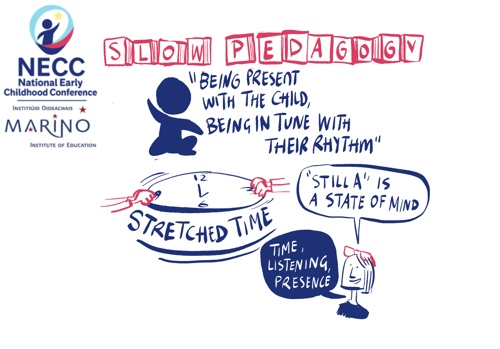 NECC
National Early
Childhood Conference
INSTITIÚID OIDEACHAIS
MARINO
INSTITUTE OF EDUCATION
SLOW PEDAGOGY
"BEING PRESENT
WITH THE CHILD,
BEING IN TUNE WITH
THEIR RHYTHM"
12
6
STRETCHED TIME
"STILL A" IS
A STATE OF MIND
TIME,
LISTENING,
PRESENCE